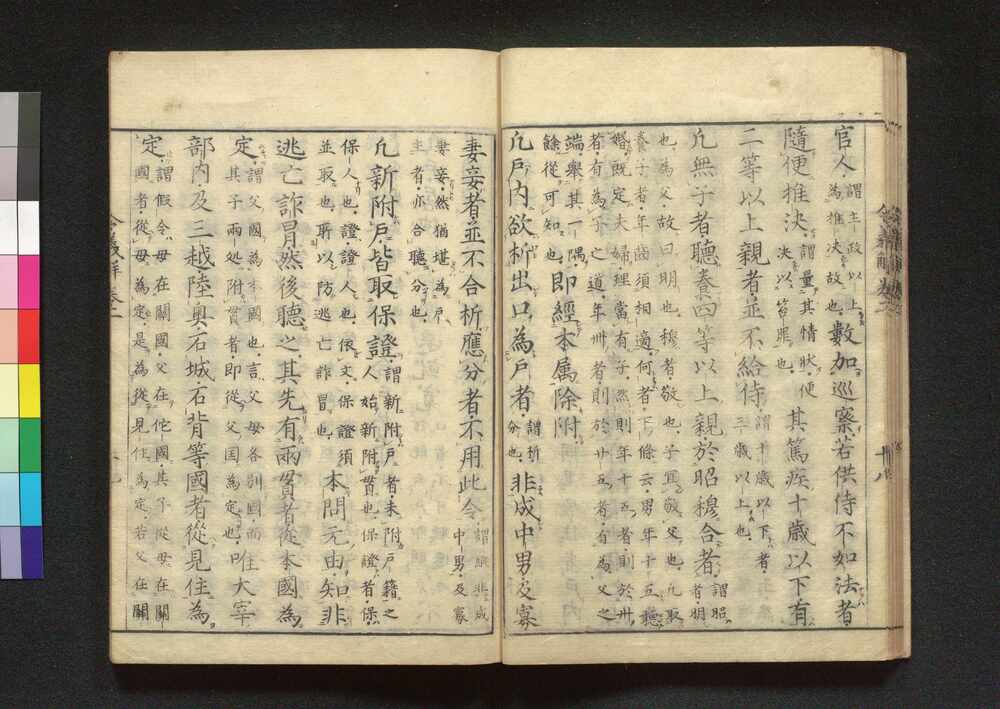 官人謂主政以上
為推決故也數加巡察若供侍不如法者
隨便推決謂量其情狀便
決以笞罪也其篤疾十歲以下有
二等以上親者並不給侍謂十歲以下者
三歲以上也
凡無子者聽養四等以上親於昭穆合者謂昭
者明
也為父故曰明也穆者敬也子宜敬父也凡取
養子者年齒須相適何者下條云男年十五聽
婚既定夫婦理當有子然則年十五者則於卅
者有為子之道年卅者則於廿五者有為父之
端舉其一隅
餘從可知也即經本属除附
凡戶內欲析出口為戶者謂析
分也非成中男及寡
十八
妻妾者並不合析應分者不用此令謂雖非成
中男及寡
妻妾然猶堪為戶
主者亦合聽分也
凡新附戶皆取保證謂新附戶者未附戶籍之
人始新附貫也保證者保
保人也證證人也依文保證須
並取也所以防逃亡詐冒也本問元由知非
逃亡詐冒然後聽之其先有兩貫者從本國為
定謂父國為本國也言父母各別國而住
其子兩処附貫者即從父国為定也唯大宰
部內及三越陸奥石城石背等國者從見住為
定謂假令母在關國父在佗國其子從母在關
國者從母為定是為從見住為定若父在關
令義解卷二